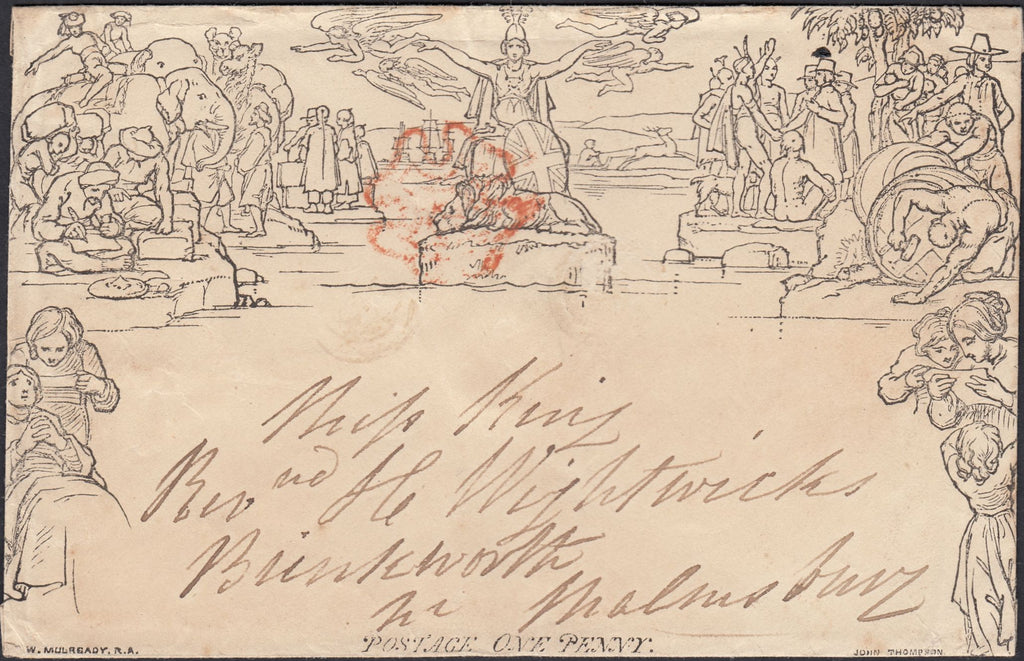 Miss King
Revnd H Wightwicks
Brinkworth
nr Malmsbury
POSTAGE ONE PENNY.
W. MULREADY, R.A.
JOHN THOMPSON